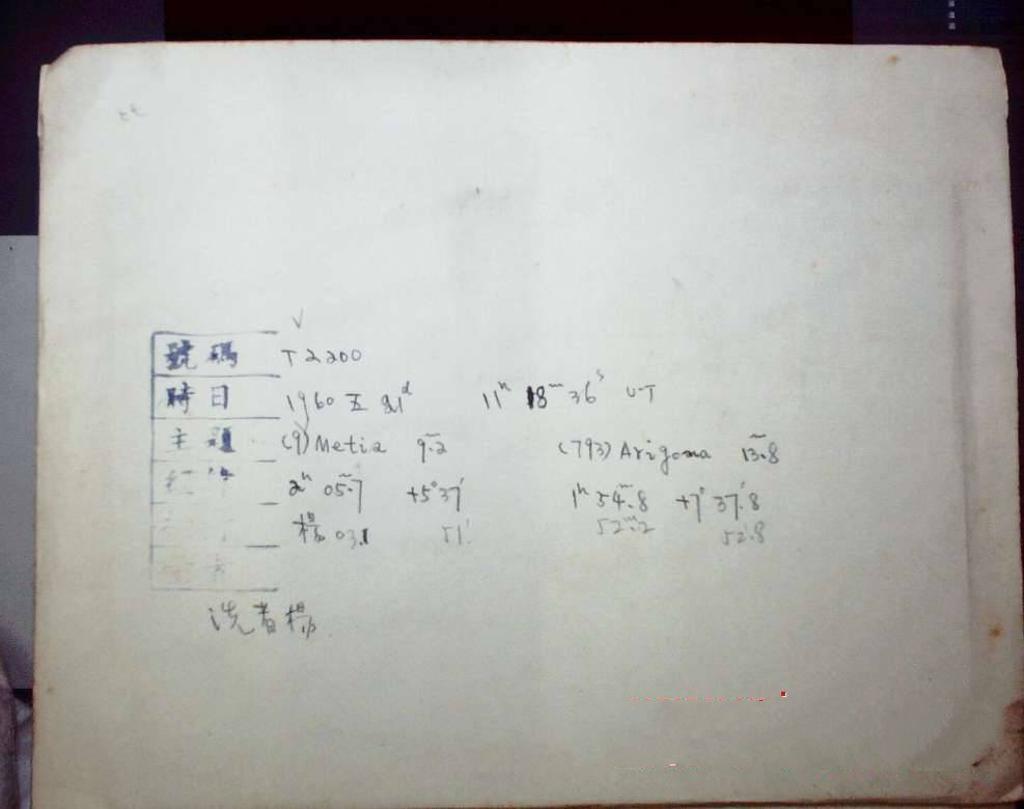 號碼 T2200
時日 1960 五 21ᵈ 11ʰ 18ᵐ 36ˢ U.T
主題 (9) Metia 9ᵐ.2 (793) Arizona 13ᵐ.8
2ʰ 05ᵐ.7 +5°37′ 1ʰ 54ᵐ.8 +7°37′.8
楊 03.1 51′ 52ᵐ.2 52′.8
洗者楊